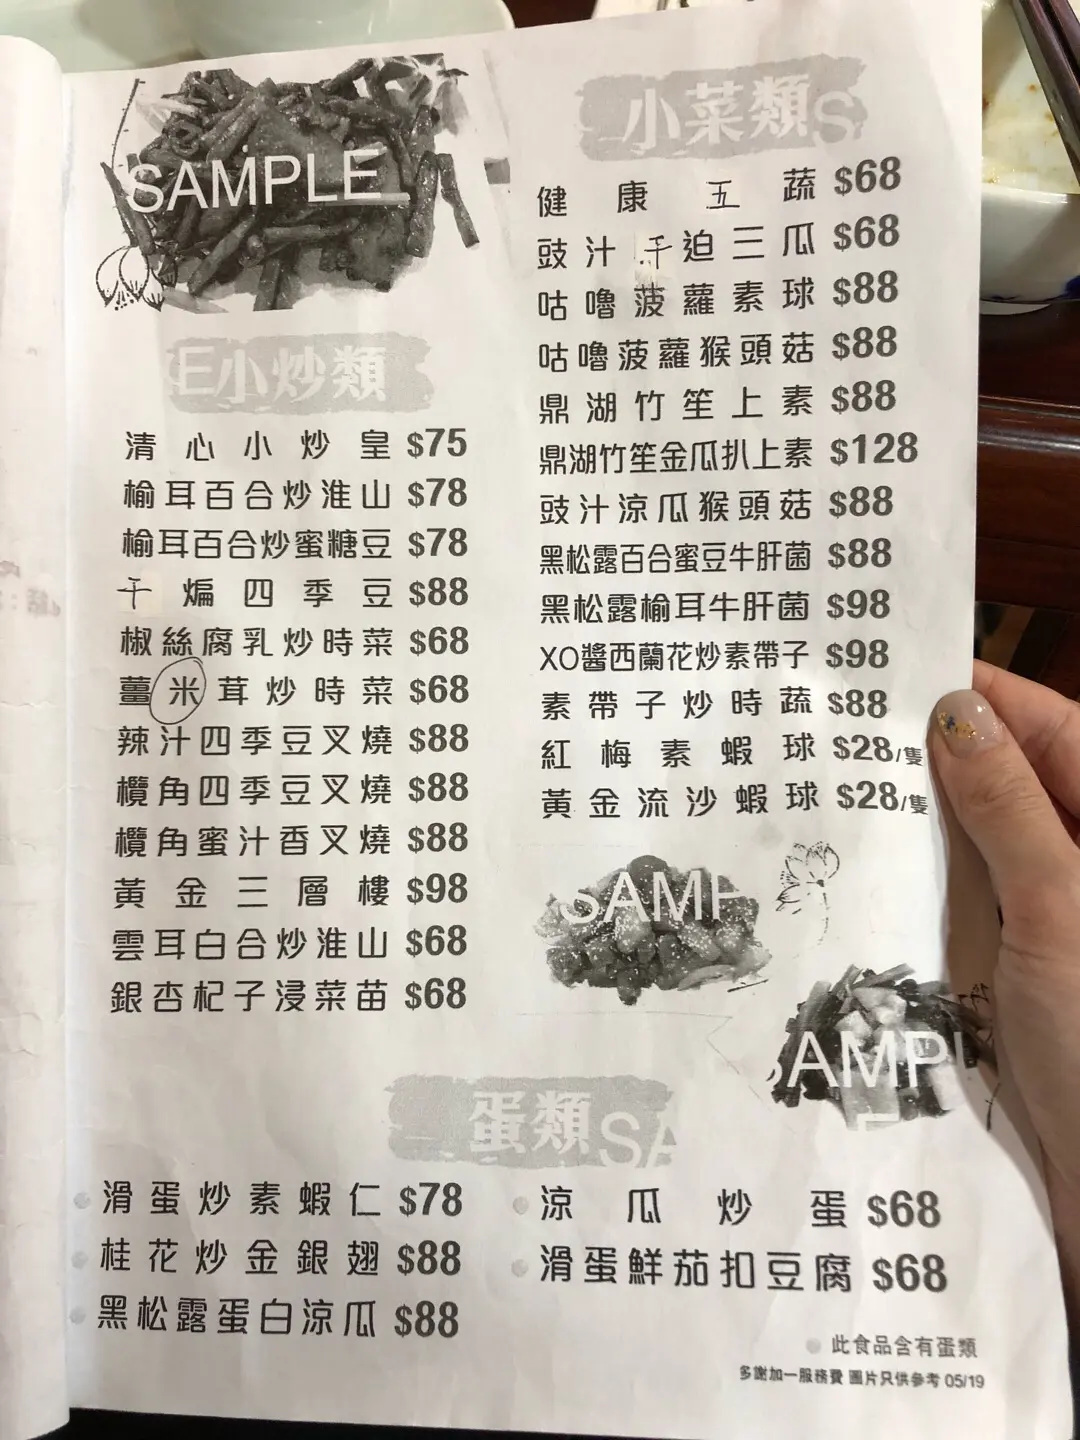 SAMPLE
E小炒類
清心小炒皇 $75
榆耳百合炒淮山 $78
榆耳百合炒蜜糖豆 $78
干煸四季豆 $88
椒絲腐乳炒時菜 $68
薑米茸炒時菜 $68
辣汁四季豆叉燒 $88
欖角四季豆叉燒 $88
欖角蜜汁香叉燒 $88
黃金三層樓 $98
雲耳白合炒淮山 $68
銀杏杞子浸菜苗 $68
小菜類S
健康五蔬 $68
豉汁千迫三瓜 $68
咕嚕菠蘿素球 $88
咕嚕菠蘿猴頭菇 $88
鼎湖竹笙上素 $88
鼎湖竹笙金瓜扒上素 $128
豉汁涼瓜猴頭菇 $88
黑松露百合蜜豆牛肝菌 $88
黑松露榆耳牛肝菌 $98
XO醬西蘭花炒素帶子 $98
素帶子炒時蔬 $88
紅梅素蝦球 $28/隻
黃金流沙蝦球 $28/隻
SAMP
SAMPL
蛋類SA
滑蛋炒素蝦仁 $78
桂花炒金銀翅 $88
黑松露蛋白涼瓜 $88
涼瓜炒蛋 $68
滑蛋鮮茄扣豆腐 $68
此食品含有蛋類
多謝加一服務費 圖片只供參考 05/19